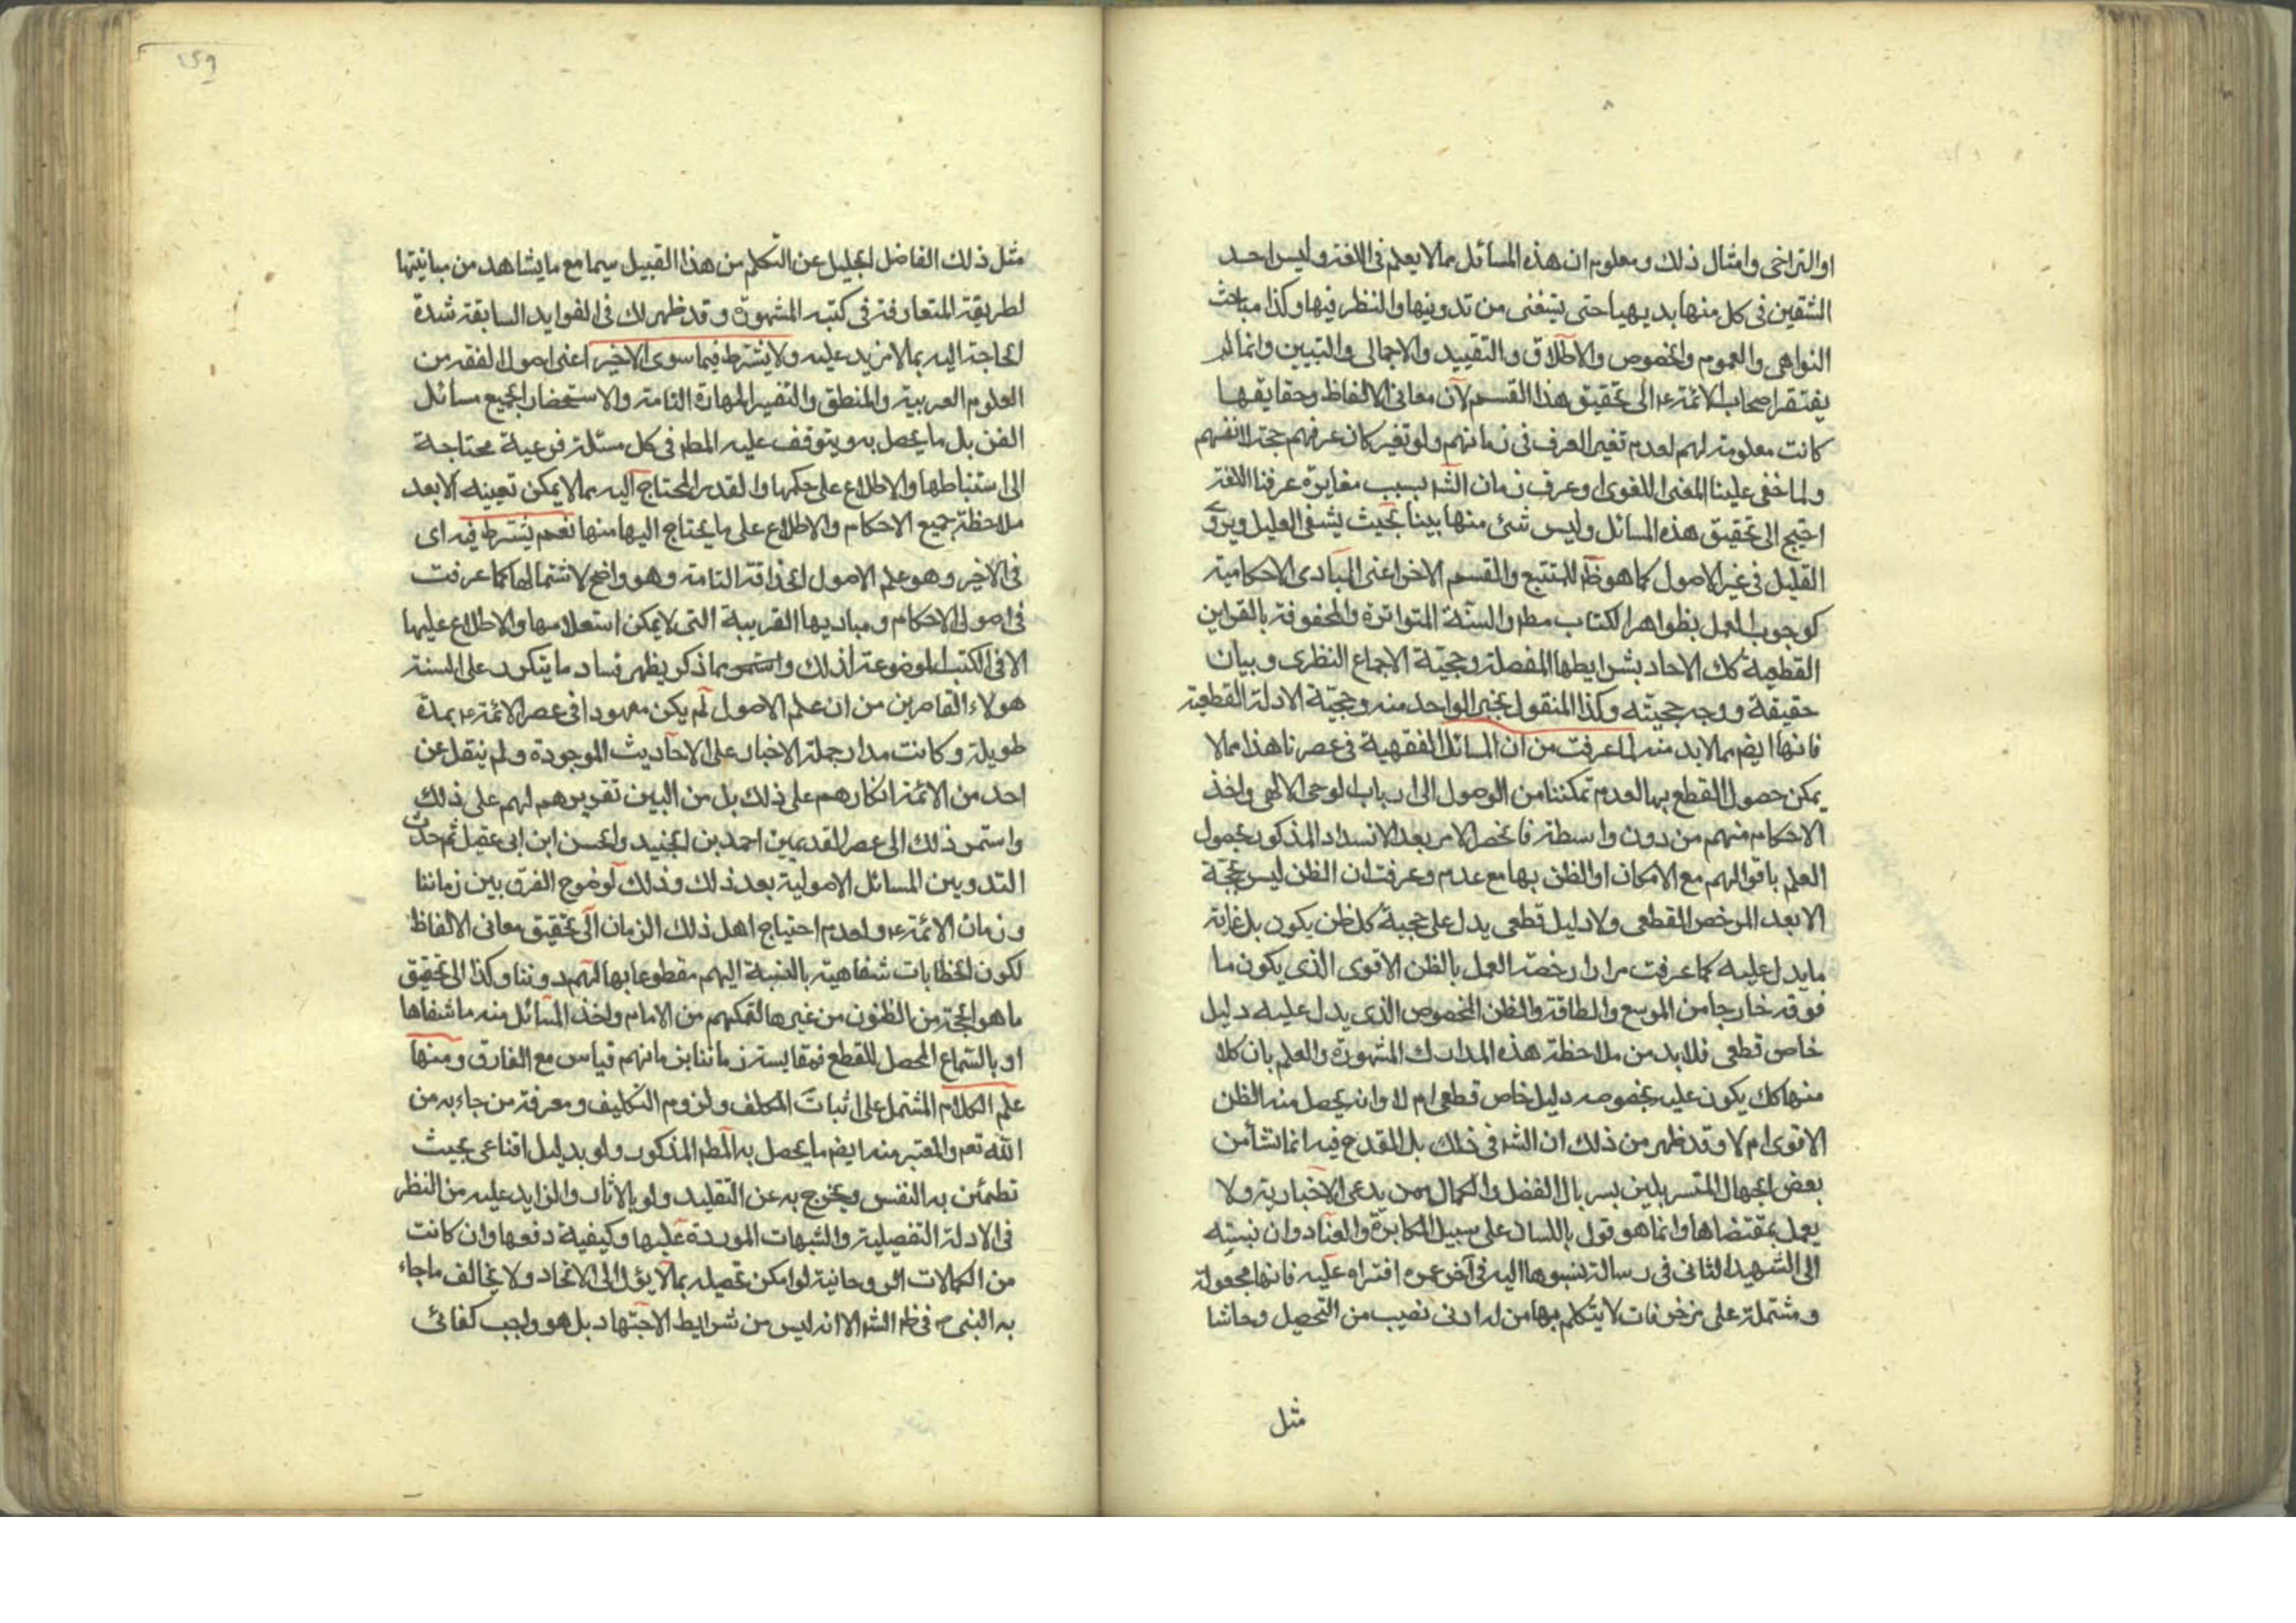 او التراخى وامثال ذلك ومعلوم ان هذه المسائل مما لا يعلم فى اللغة وليس احد
الشقين فى كل منها بديهيا حتى يستغنى من تدوينها والنظر فيها وكذا مباحث
النواهى والعموم والخصوص والاطلاق والتقييد والاجمالى والتبيين وانما لم
يفتقر اصحاب الائمة ع الى تحقيق هذا القسم لان معانى الالفاظ وحقايقها
كانت معلومة لهم لعدم تغير العرف فى زمانهم ولو تغير كان عرفهم حجة لانفسهم
ولما خفى علينا المعنى اللغوى او عرف زمان الشه بسبب مغايرة عرفنا اللغة
احتيج الى تحقيق هذه المسائل وليس شئ منها بينا بحيث يشفى العليل ويروى
القليل فى غير الاصول كما هو ظم للمتتبع والقسم الاخر اعنى المبادى الاحكامية
كوجوب العمل بظواهر الكتاب مطم والسنة المتواترة والمحفوفة بالقراين
القطعية كك الاحاد بشرايطها المفصلة وحجية الاجماع النظرى وبيان
حقيقة ووجه حجيته وكذا المنقول بخبر الواحد منه وحجية الادلة القطعية
فانها ايضم مما لابد منه لما عرفت من ان المسائل الفقهية فى عصرنا هذا مما لا
يمكن حصول القطع بها لعدم تمكننا من الوصول الى ارباب الوحى الالهى واخذ
الاحكام منهم من دون واسطة فانحصر الامر بعد الانسداد المذكور بحصول
العلم باقوالهم مع الامكان او الظن بها مع عدم وعرفت ان الظن ليس بحجة
الا بعد المرخص القطعى ولا دليل قطعى يدل على حجية كل ظن يكون بل غاية
ما يدل عليه كما عرفت مرارا رخصة العمل بالظن الاقوى الذى يكون ما
فوقه خارجا من الوسع والطاقة والظن المخصوص الذى يدل عليه دليل
خاص قطعى فلابد من ملاحظة هذه المدارك المشهورة والعلم بان كلا
منها كك يكون عليه بخصوصه دليل خاص قطعى ام لا وانه يحصل منه الظن
الاقوى ام لا وقد ظهر من ذلك ان الشه فى ذلك بل القدح فيه انما نشأ من
بعض الجهال المتسربلين بسربال الفضل والكمال ممن يدعى الاخبارية ولا
يعمل بمقتضاها وانما هو قول باللسان على سبيل المكابرة والعناد وان نسبته
الى الشهيد الثانى فى رسالة نسبوها اليه فى آخر عمره افتراه عليه فانها مجعولة
ومشتملة على مزخرفات لا يتكلم بها من له ادنى نصيب من التحصيل وحاشا
مثل
١٥٩
مثل ذلك الفاضل الجليل عن التكلم من هذا القبيل سيما مع ما يشاهد من مباينتها
لطريقة المتعارفة فى كتبه المشهورة وقد ظهر لك فى الفوايد السابقة شدة
الحاجة اليه بما لا مزيد عليه ولا يشترط فيما سوى الاخير اعنى اصول الفقه من
العلوم العربية والمنطق والتفسير المهارة التامة والاستحضار لجميع مسائل
الفن بل ما يحصل به ويتوقف عليه المطم فى كل مسئلة فرعية محتاجة
الى استنباطها والاطلاع على حكمها والقدر المحتاج اليه مما لا يمكن تعيينه الا بعد
ملاحظة جميع الاحكام والاطلاع على ما يحتاج اليها منها نعم يشترط فيه اى
فى الاخير وهو علم الاصول الحذاقة التامة وهو واضح لاشتمالها كما عرفت
فى اصول الاحكام ومباديها القريبة التى لا يمكن استعلامها والاطلاع عليها
الا فى الكتب الموضوعة لذلك ومما ذكر يظهر فساد ما يتكرر على السنة
هولاء القاصرين من ان علم الاصول لم يكن معهودا فى عصر الائمة ع بمدة
طويلة وكانت مدار جملة الاخبار على الاحاديث الموجودة ولم ينقل عن
احد من الائمة انكارهم على ذلك بل من البين تقريرهم لهم على ذلك
واستمر ذلك الى عصر القديمين احمد بن الجنيد والحسن ابن ابى عقيل ثم حدث
التدوين المسائل الاصولية بعد ذلك وذلك لوضوح الفرق بين زماننا
وزمان الائمة ع ولعدم احتياج اهل ذلك الزمان الى تحقيق معانى الالفاظ
لكون الخطابات شفاهية بالنسبة اليهم مقطوعا بها لهم دوننا وكذا الى تحقيق
ما هو الحجة من الظنون من غيرها لتمكنهم من الامام واخذ المسائل منه ما شفاها
او بالسماع المحصل للقطع فمقايسة زماننا بزمانهم قياس مع الفارق ومنها
علم الكلام المشتمل على اثبات المكلف ولزوم التكليف ومعرفة من جاء به من
الله تعم والمعتبر منه ايضم ما يحصل به المطم المذكور ولو بدليل اقناعى بحيث
تطمئن به النفس ويخرج به عن التقليد ولو بالاثار والزايد عليه من النظر
فى الادلة التفصيلية والشبهات الموردة عليها وكيفية دفعها وان كانت
من الكمالات الروحانية لو امكن تحصيله بما لا يؤل الى الالحاد ولا يخالف ما جاء
به النبى ص فى ظم الشه الا انه ليس من شرايط الاجتهاد بل هو واجب كفائى